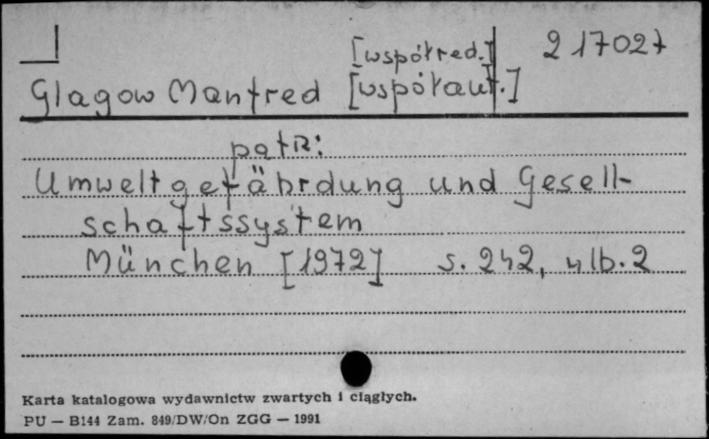 [współred.] 217027
Glagow Manfred [współaut.]
patrz:
Umweltgefährdung und Gesell-
schaftssystem
München [1972] s. 242, nlb. 2
Karta katalogowa wydawnictw zwartych i ciągłych.
PU — B144 Zam. 849/DW/On ZGG — 1991